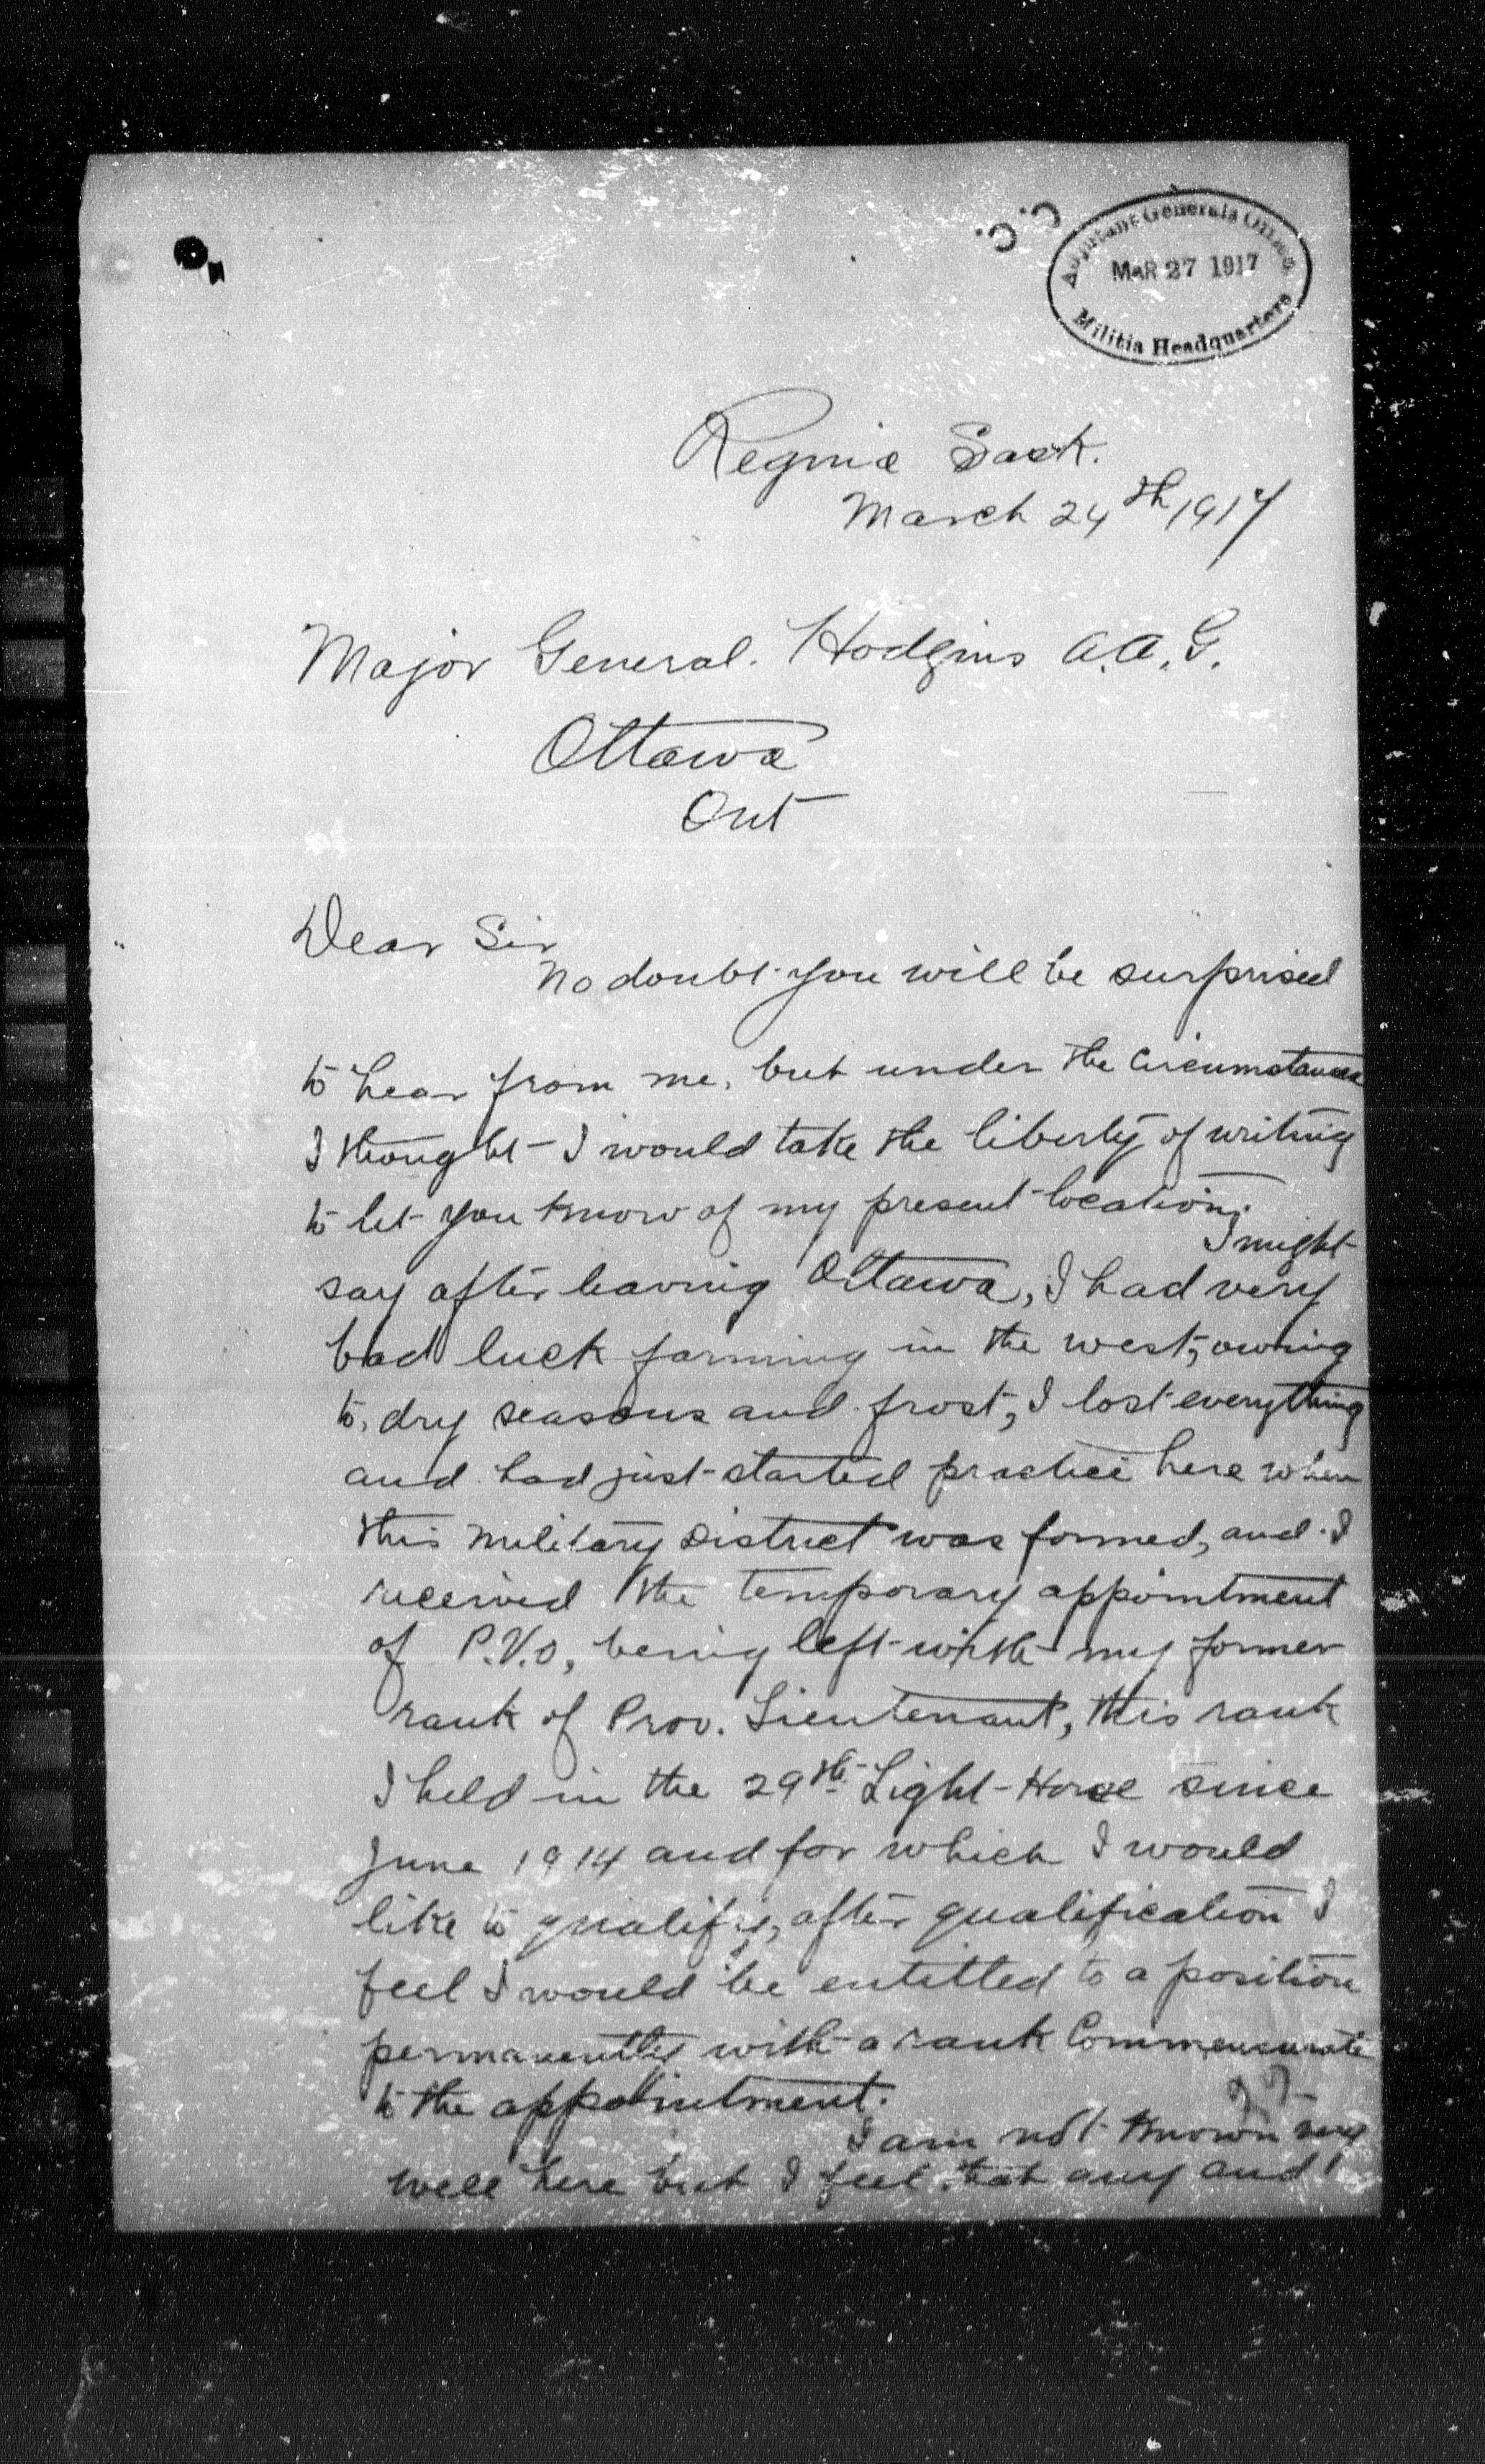 Adjutant Generals Office
MAR 27 1917
Militia Headquarters
Regina Sask.
March 24th 1917
Major General. Hodgins A.A.G.
Ottawa
Ont
Dear Sir
No doubt you will be surprised
to hear from me, but under the circumstances
I thought I would take the liberty of writing
to let you know of my present location.
I might
say after leaving Ottawa, I had very
bad luck farming in the west, owing
to dry seasons and frost, I lost everything
and had just started practice here when
this Military District was formed, and I
received the temporary appointment
of P.V.O, being left with my former
rank of Prov. Lieutenant, this rank
I held in the 29th Light Horse since
June 1914 and for which I would
like to qualify, after qualification I
feel I would be entitled to a position
permanently with a rank Commensurate
to the appointment.
I am not known very
well here but I feel that any and